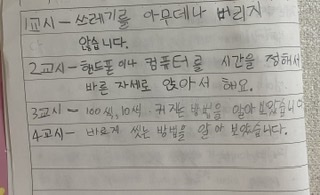 1교시 - 쓰레기를 아무데나 버리지
않습니다.
2교시 - 핸드폰이나 컴퓨터를 시간을 정해서
바른 자세로 앉아서 해요.
3교시 - 100씩, 10씩 커지는 방법을 알아보았습니다
4교시 - 바르게 씻는 방법을 알아보았습니다.